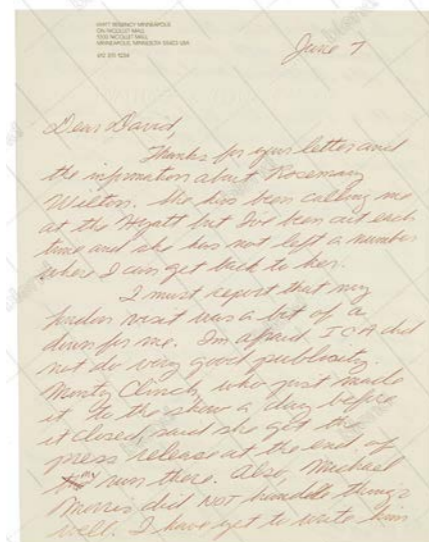 HYATT REGENCY MINNEAPOLIS
ON NICOLLET MALL
1300 NICOLLET MALL
MINNEAPOLIS, MINNESOTA 55403 USA
612 370 1234
June 7
Dear David,
Thanks for your letter and
the information about Rosemary
Wilton. She has been calling me
at the Hyatt but I've been out each
time and she has not left a number
where I can get back to her.
I must report that my
London visit was a bit of a
down for me. I'm afraid ICA did
not do very good publicity.
Monty Clinch who just made
it to the show a day before
it closed said she got the
press release at the end of
my run there. Also, Michael
Morris did NOT handle things
well. I have yet to write him